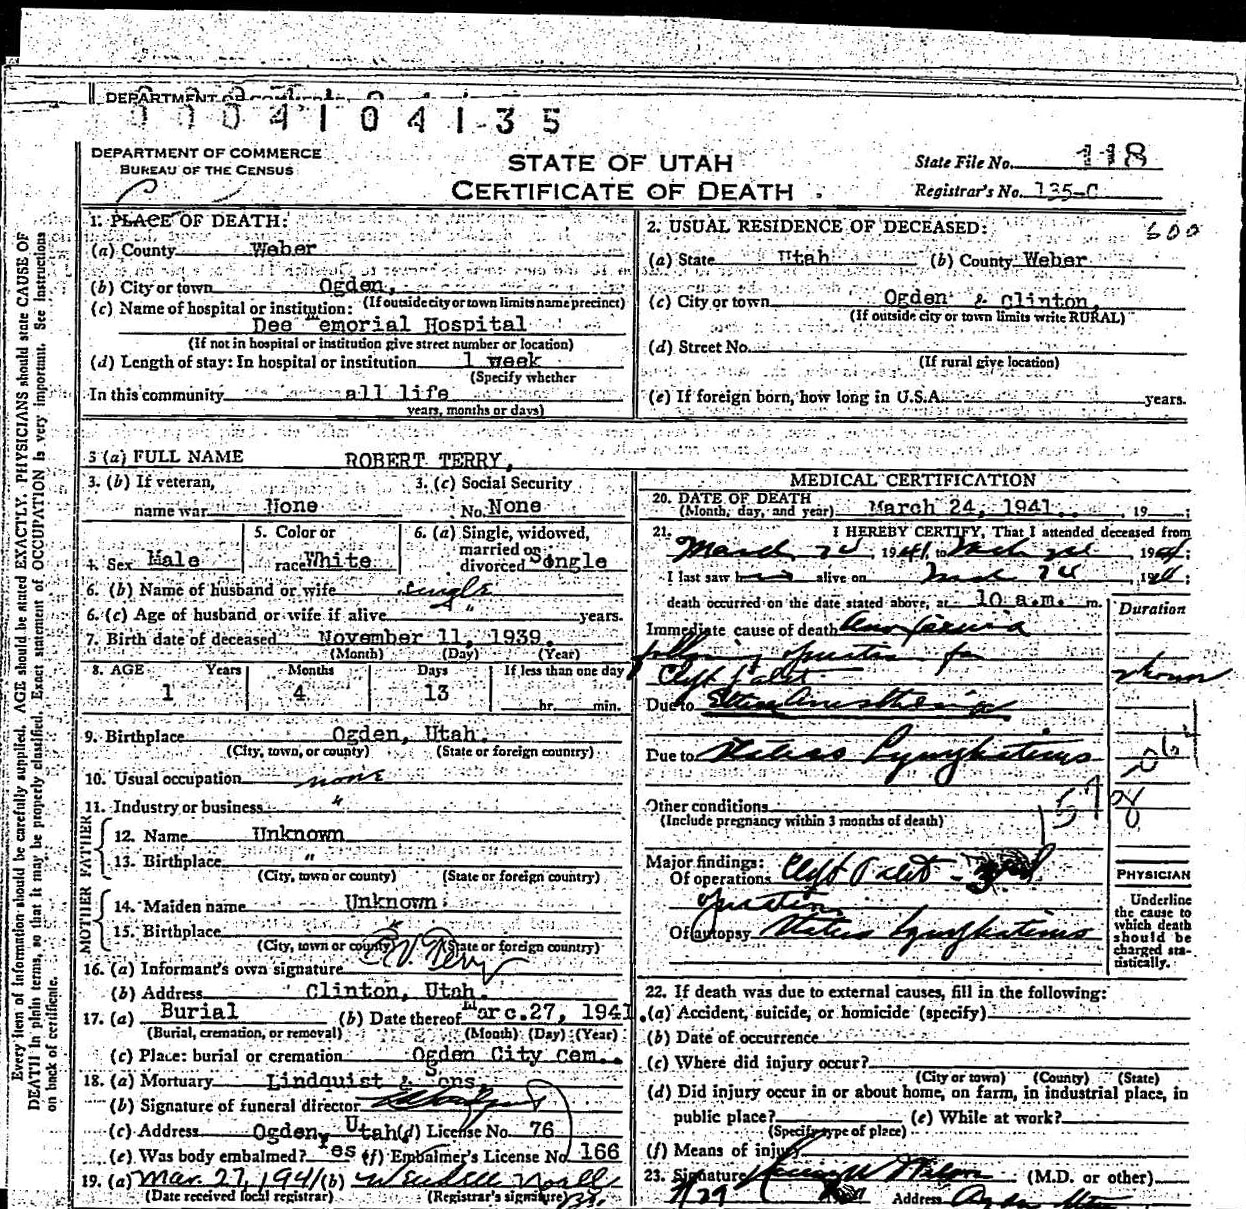 0004104135
DEPARTMENT OF COMMERCE
BUREAU OF THE CENSUS
STATE OF UTAH
CERTIFICATE OF DEATH
State File No. 118
Registrar's No. 135-C
1. PLACE OF DEATH:
(a) County Weber
(b) City or town Ogden,
(If outside city or town limits name precinct)
(c) Name of hospital or institution:
Dee Memorial Hospital
(If not in hospital or institution give street number or location)
(d) Length of stay: In hospital or institution 1 week
(Specify whether
In this community all life
years, months or days)
2. USUAL RESIDENCE OF DECEASED: 600
(a) State Utah (b) County Weber
(c) City or town Ogden & Clinton,
(If outside city or town limits write RURAL)
(d) Street No.
(If rural give location)
(e) If foreign born, how long in U.S.A. years.
3 (a) FULL NAME ROBERT TERRY,
3. (b) If veteran, name war None
3. (c) Social Security No. None
4. Sex Male
5. Color or race White
6. (a) Single, widowed, married or divorced Single
6. (b) Name of husband or wife single
6. (c) Age of husband or wife if alive " years.
7. Birth date of deceased November 11, 1939.
(Month) (Day) (Year)
8. AGE Years Months Days If less than one day
1 4 13 hr. min.
9. Birthplace Ogden, Utah.
(City, town, or county) (State or foreign country)
10. Usual occupation none
11. Industry or business "
FATHER
12. Name Unknown
13. Birthplace "
(City, town or county) (State or foreign country)
MOTHER
14. Maiden name Unknown
15. Birthplace "
(City, town or county) (State or foreign country)
16. (a) Informant's own signature Terry
(b) Address Clinton, Utah.
17. (a) Burial (b) Date thereof Marc.27, 1941
(Burial, cremation, or removal) (Month) (Day) (Year)
(c) Place: burial or cremation Ogden City Cem..
18. (a) Mortuary Lindquist & Sons,
(b) Signature of funeral director
(c) Address Ogden, Utah (d) License No. 76
(e) Was body embalmed? Yes (f) Embalmer's License No 166
19. (a) Mar. 27, 1941 (b)
(Date received local registrar) (Registrar's signature)
MEDICAL CERTIFICATION
20. DATE OF DEATH
(Month, day, and year) March 24, 1941. , 19 ;
21. I HEREBY CERTIFY, That I attended deceased from
March 24, 1941, to 1941;
I last saw him alive on 24 1941;
death occurred on the date stated above, at 10 a.m. m.
Duration
Immediate cause of death
following operation for
Cleft Palit
Due to Ether Anesthesia
Due to Status Lymphaticus
Other conditions
(Include pregnancy within 3 months of death)
Major findings:
Of operations Cleft Palit
operation
Of autopsy Status Lymphaticus
PHYSICIAN
Underline the cause to which death should be charged statistically.
22. If death was due to external causes, fill in the following:
(a) Accident, suicide, or homicide (specify)
(b) Date of occurrence
(c) Where did injury occur?
(City or town) (County) (State)
(d) Did injury occur in or about home, on farm, in industrial place, in
public place? (e) While at work?
(Specify type of place)
(f) Means of injury
23. Signature (M.D. or other)
Address Ogden Utah
Every item of information should be carefully supplied. AGE should be stated EXACTLY. PHYSICIANS should state CAUSE OF
DEATH in plain terms, so that it may be properly classified. Exact statement of OCCUPATION is very important. See instructions
on back of certificate.